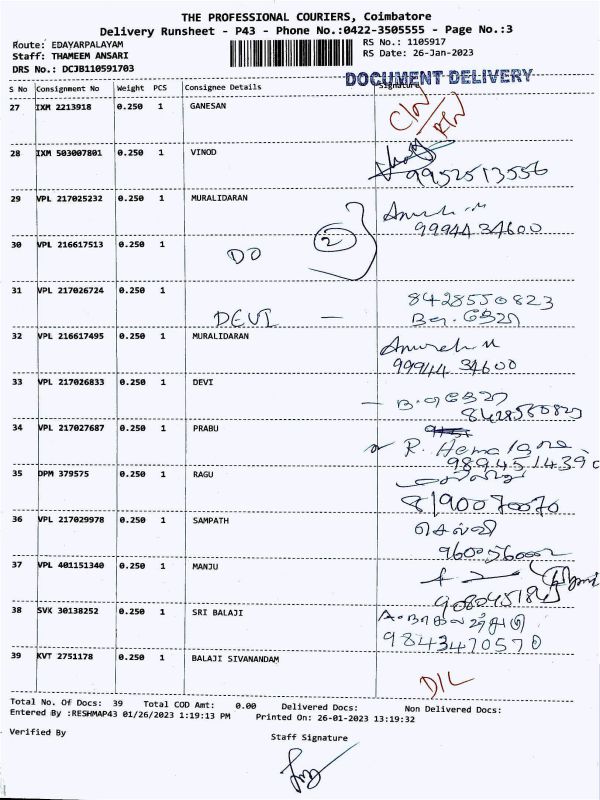 THE PROFESSIONAL COURIERS, Coimbatore
Delivery Runsheet - P43 - Phone No.:0422-3505555 - Page No.:3
Route: EDAYARPALAYAM RS No.: 1105917
Staff: THAMEEM ANSARI RS Date: 26-Jan-2023
DRS No.: DCJB110591703
DOCUMENT DELIVERY
S No Consignment No Weight PCS Consignee Details Signature
27 IXM 2213918 0.250 1 GANESAN
28 IXM 503007801 0.250 1 VINOD
9952513556
29 VPL 217025232 0.250 1 MURALIDARAN
9994434600
30 VPL 216617513 0.250 1
DO 2
31 VPL 217026724 0.250 1 8428550823
DEVI —
32 VPL 216617495 0.250 1 MURALIDARAN
9994434600
33 VPL 217026833 0.250 1 DEVI
34 VPL 217027687 0.250 1 PRABU
R. Hema
9894514390
35 DPM 379575 0.250 1 RAGU
8190070070
36 VPL 217029978 0.250 1 SAMPATH செல்வி
37 VPL 401151340 0.250 1 MANJU
38 SVK 30138252 0.250 1 SRI BALAJI
9843470570
39 KVT 2751178 0.250 1 BALAJI SIVANANDAM
D/L
Total No. Of Docs: 39 Total COD Amt: 0.00 Delivered Docs: Non Delivered Docs:
Entered By :RESHMAP43 01/26/2023 1:19:13 PM Printed On: 26-01-2023 13:19:32
Verified By Staff Signature